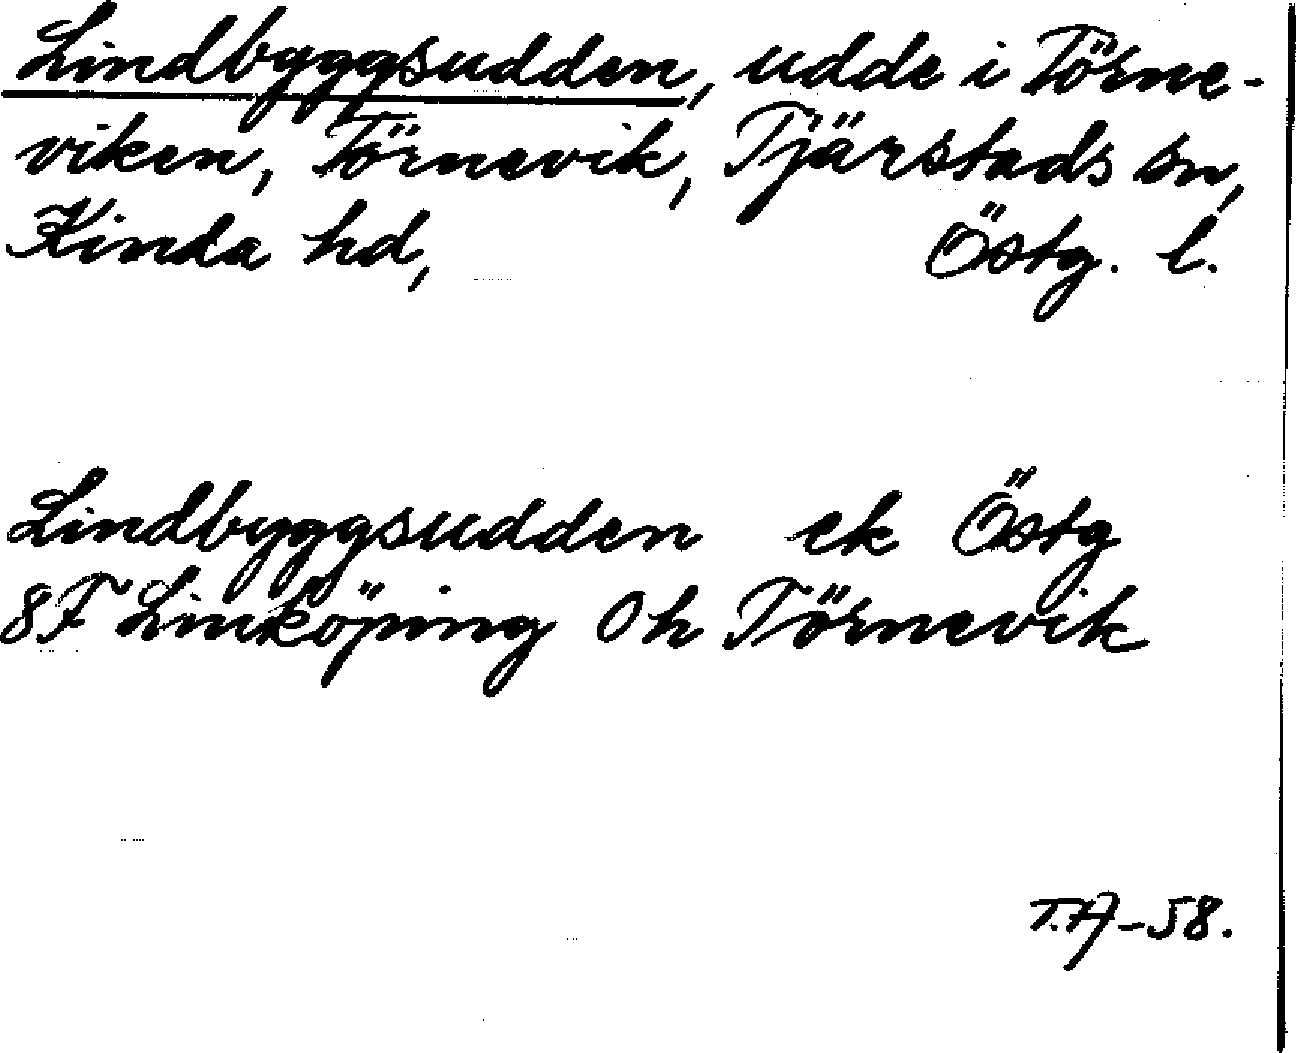 Lindbyggsudden, udde i Törne-
viken, Törnevik, Tjärstads sn,
Kinda hd, Östg. l.
Lindbyggsudden ek Östg
8F Linköping Oh Törnevik
T.A-58.